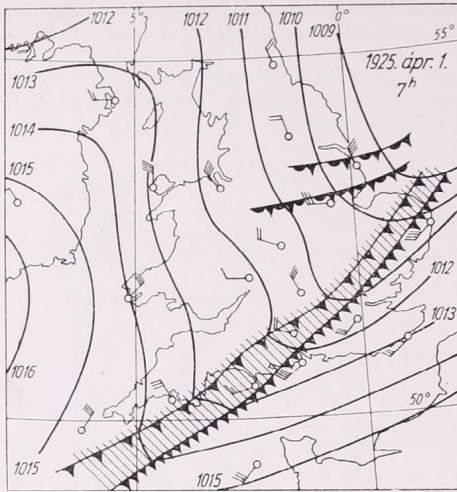 1012 5° 1012 1011 1010 0° 55°
1009
1013 1925. ápr. 1.
7ʰ
1014
1015
1012
1013
1016
50°
1015 1015